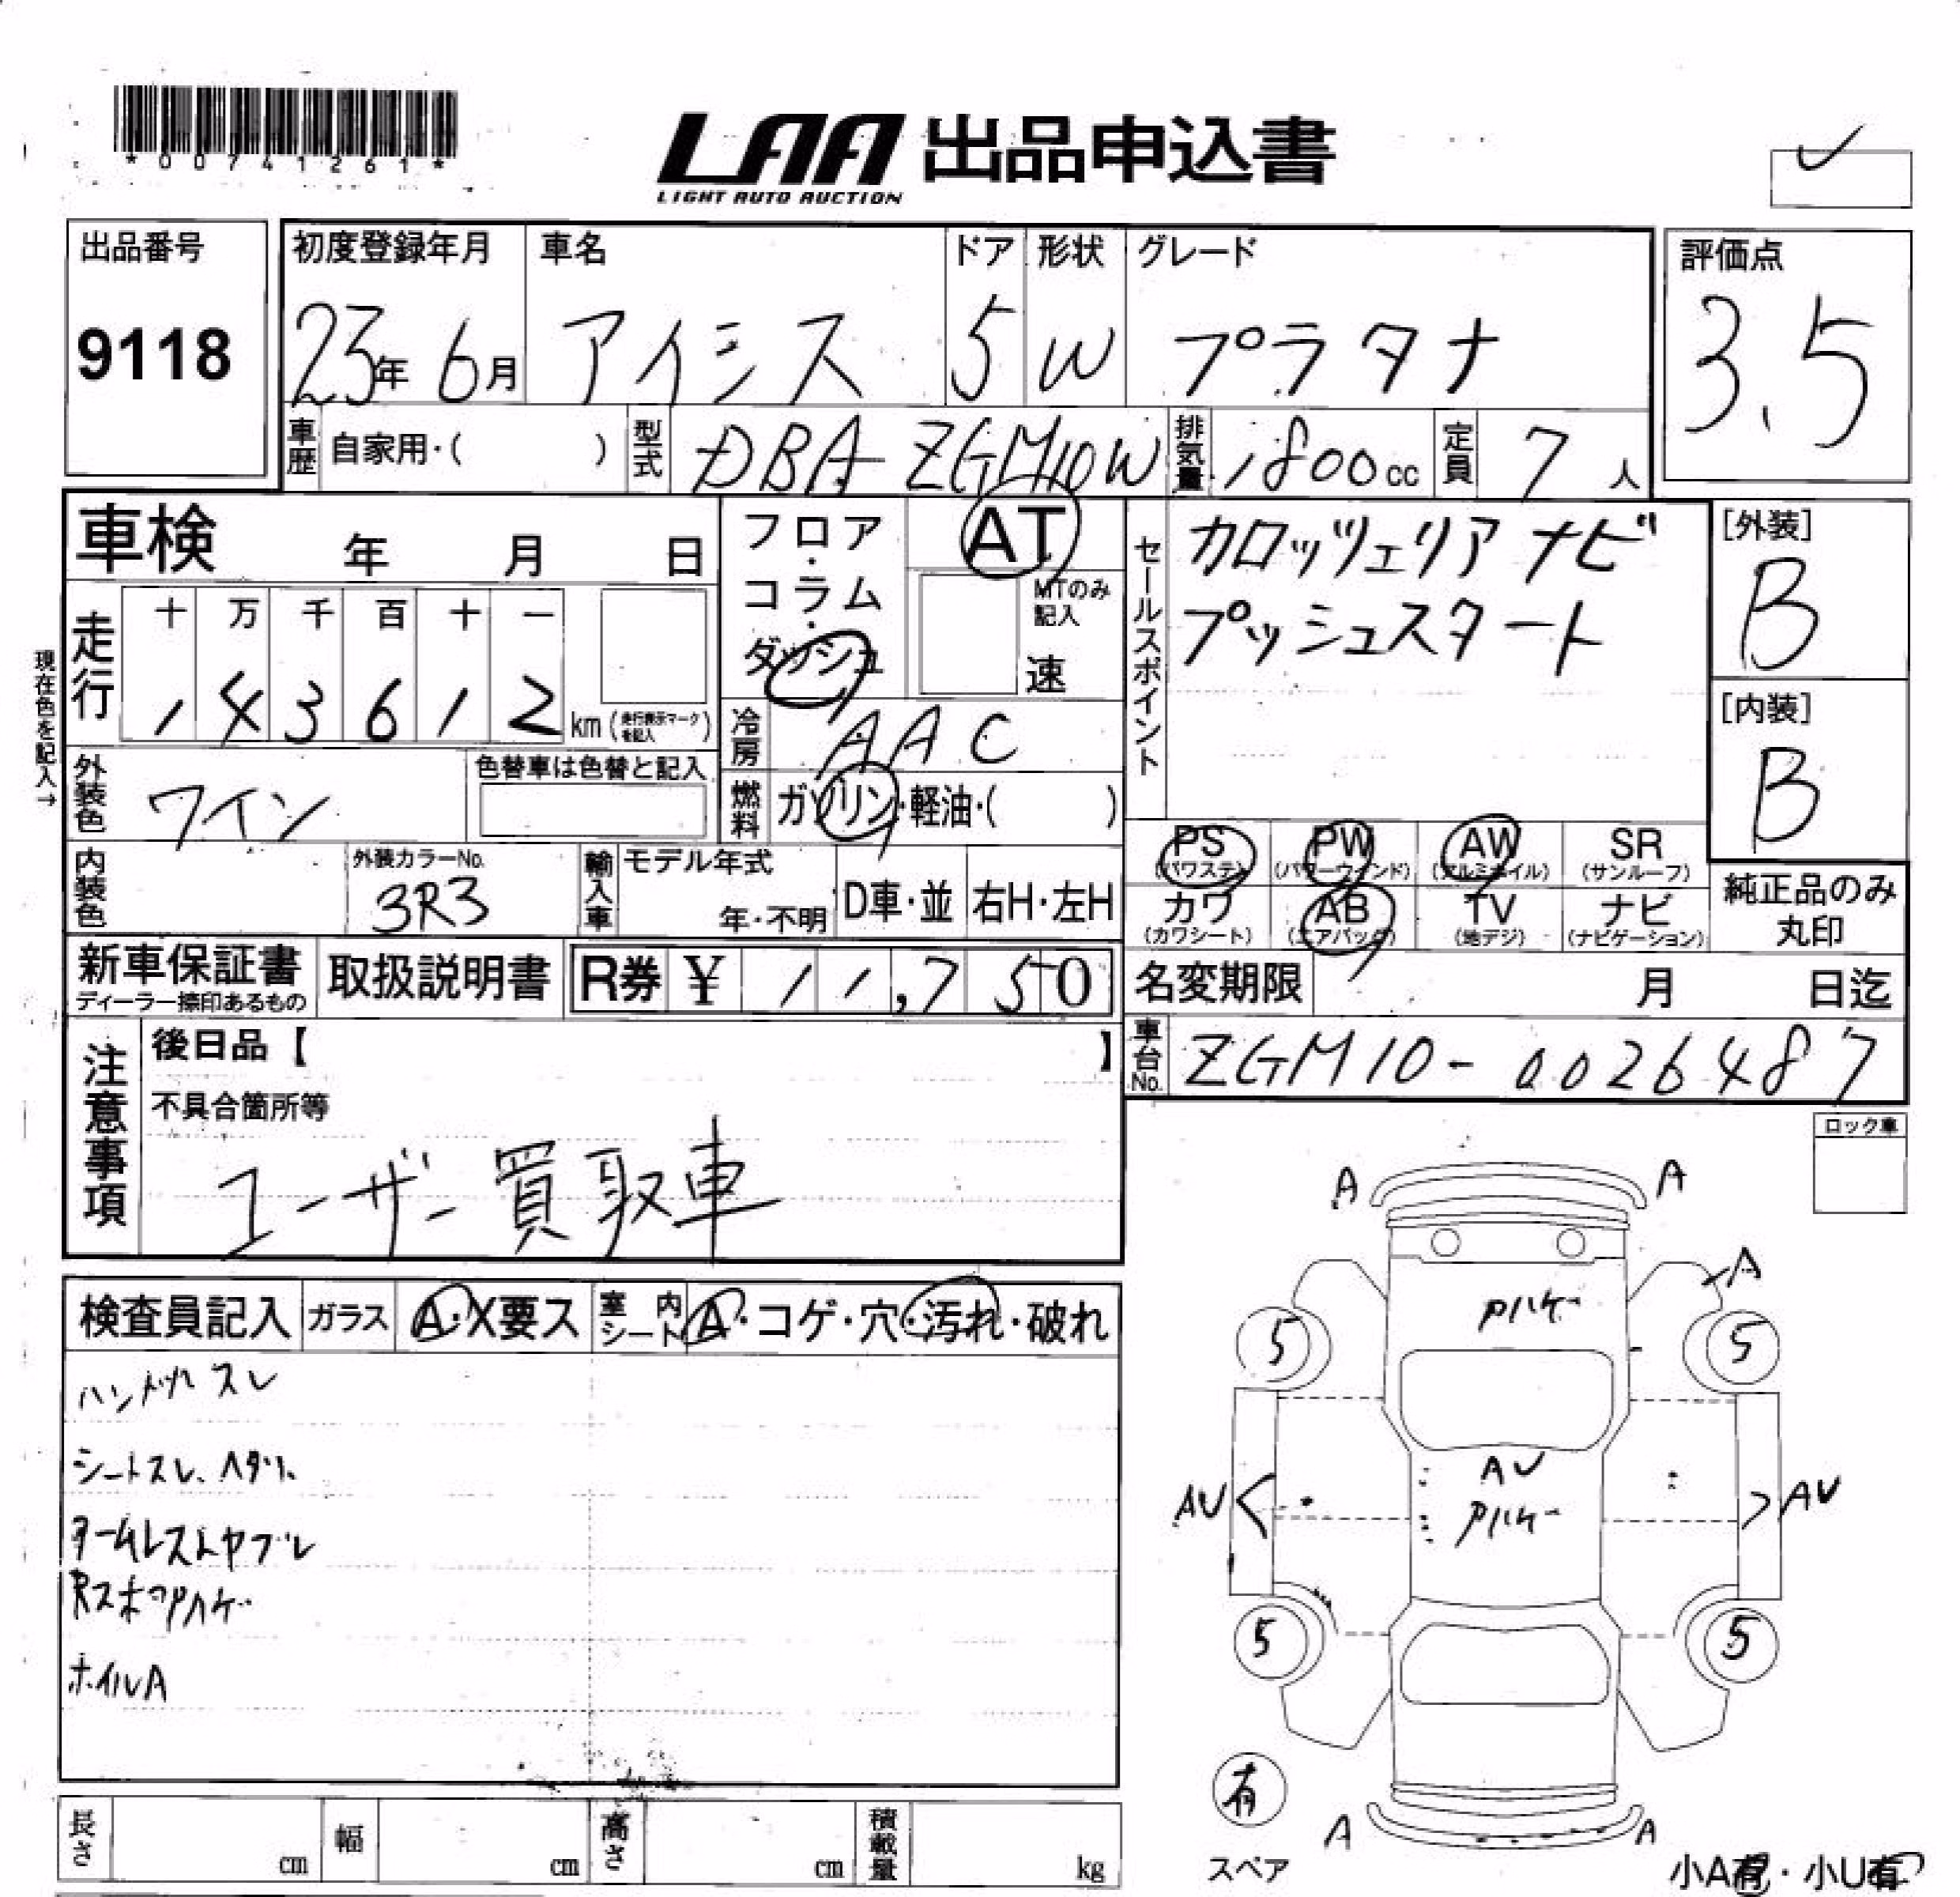 *00741261*
LAA 出品申込書
LIGHT AUTO AUCTION
出品番号 9118
初度登録年月 23年 6月
車名 アイシス
ドア 5
形状 W
グレード プラタナ
評価点 3.5
車歴 自家用・( )
型式 DBA ZGM10W
排気量 1800cc
定員 7人
車検 年 月 日
フロア・コラム・ダッシュ
AT
MTのみ記入
速
セールスポイント
カロッツェリア ナビ
プッシュスタート
[外装] B
[内装] B
現在色を記入→
走行 十 万 千 百 十 一
1 4 3 6 1 2 km (走行表示マークを記入)
冷房 AAC
外装色 ワイン
色替車は色替と記入
燃料 ガソリン・軽油・( )
内装色
外装カラーNo. 3R3
輸入車 モデル年式 年・不明
D車・並
右H・左H
PS (パワステ)
PW (パワーウインド)
AW (アルミホイル)
SR (サンルーフ)
カワ (カワシート)
AB (エアバック)
TV (地デジ)
ナビ (ナビゲーション)
純正品のみ丸印
新車保証書
ディーラー捺印あるもの
取扱説明書
R券 ¥ 11,750
名変期限 月 日迄
車台No. ZGM10-0026487
注意事項
後日品【 】
不具合箇所等
ユーザー買取車
ロック車
検査員記入
ガラス A・X要ス
室内シート A・コゲ・穴・汚れ・破れ
ハンドルスレ
シートスレ、ヘタリ
アームレストヤブレ
RスポPハゲ
ホイルA
A A
A
Pハゲ
5 5
AU
AU AU
Pハゲ
5 5
有
スペア
A A
小A有・小U有
長さ cm
幅 cm
高さ cm
積載量 kg